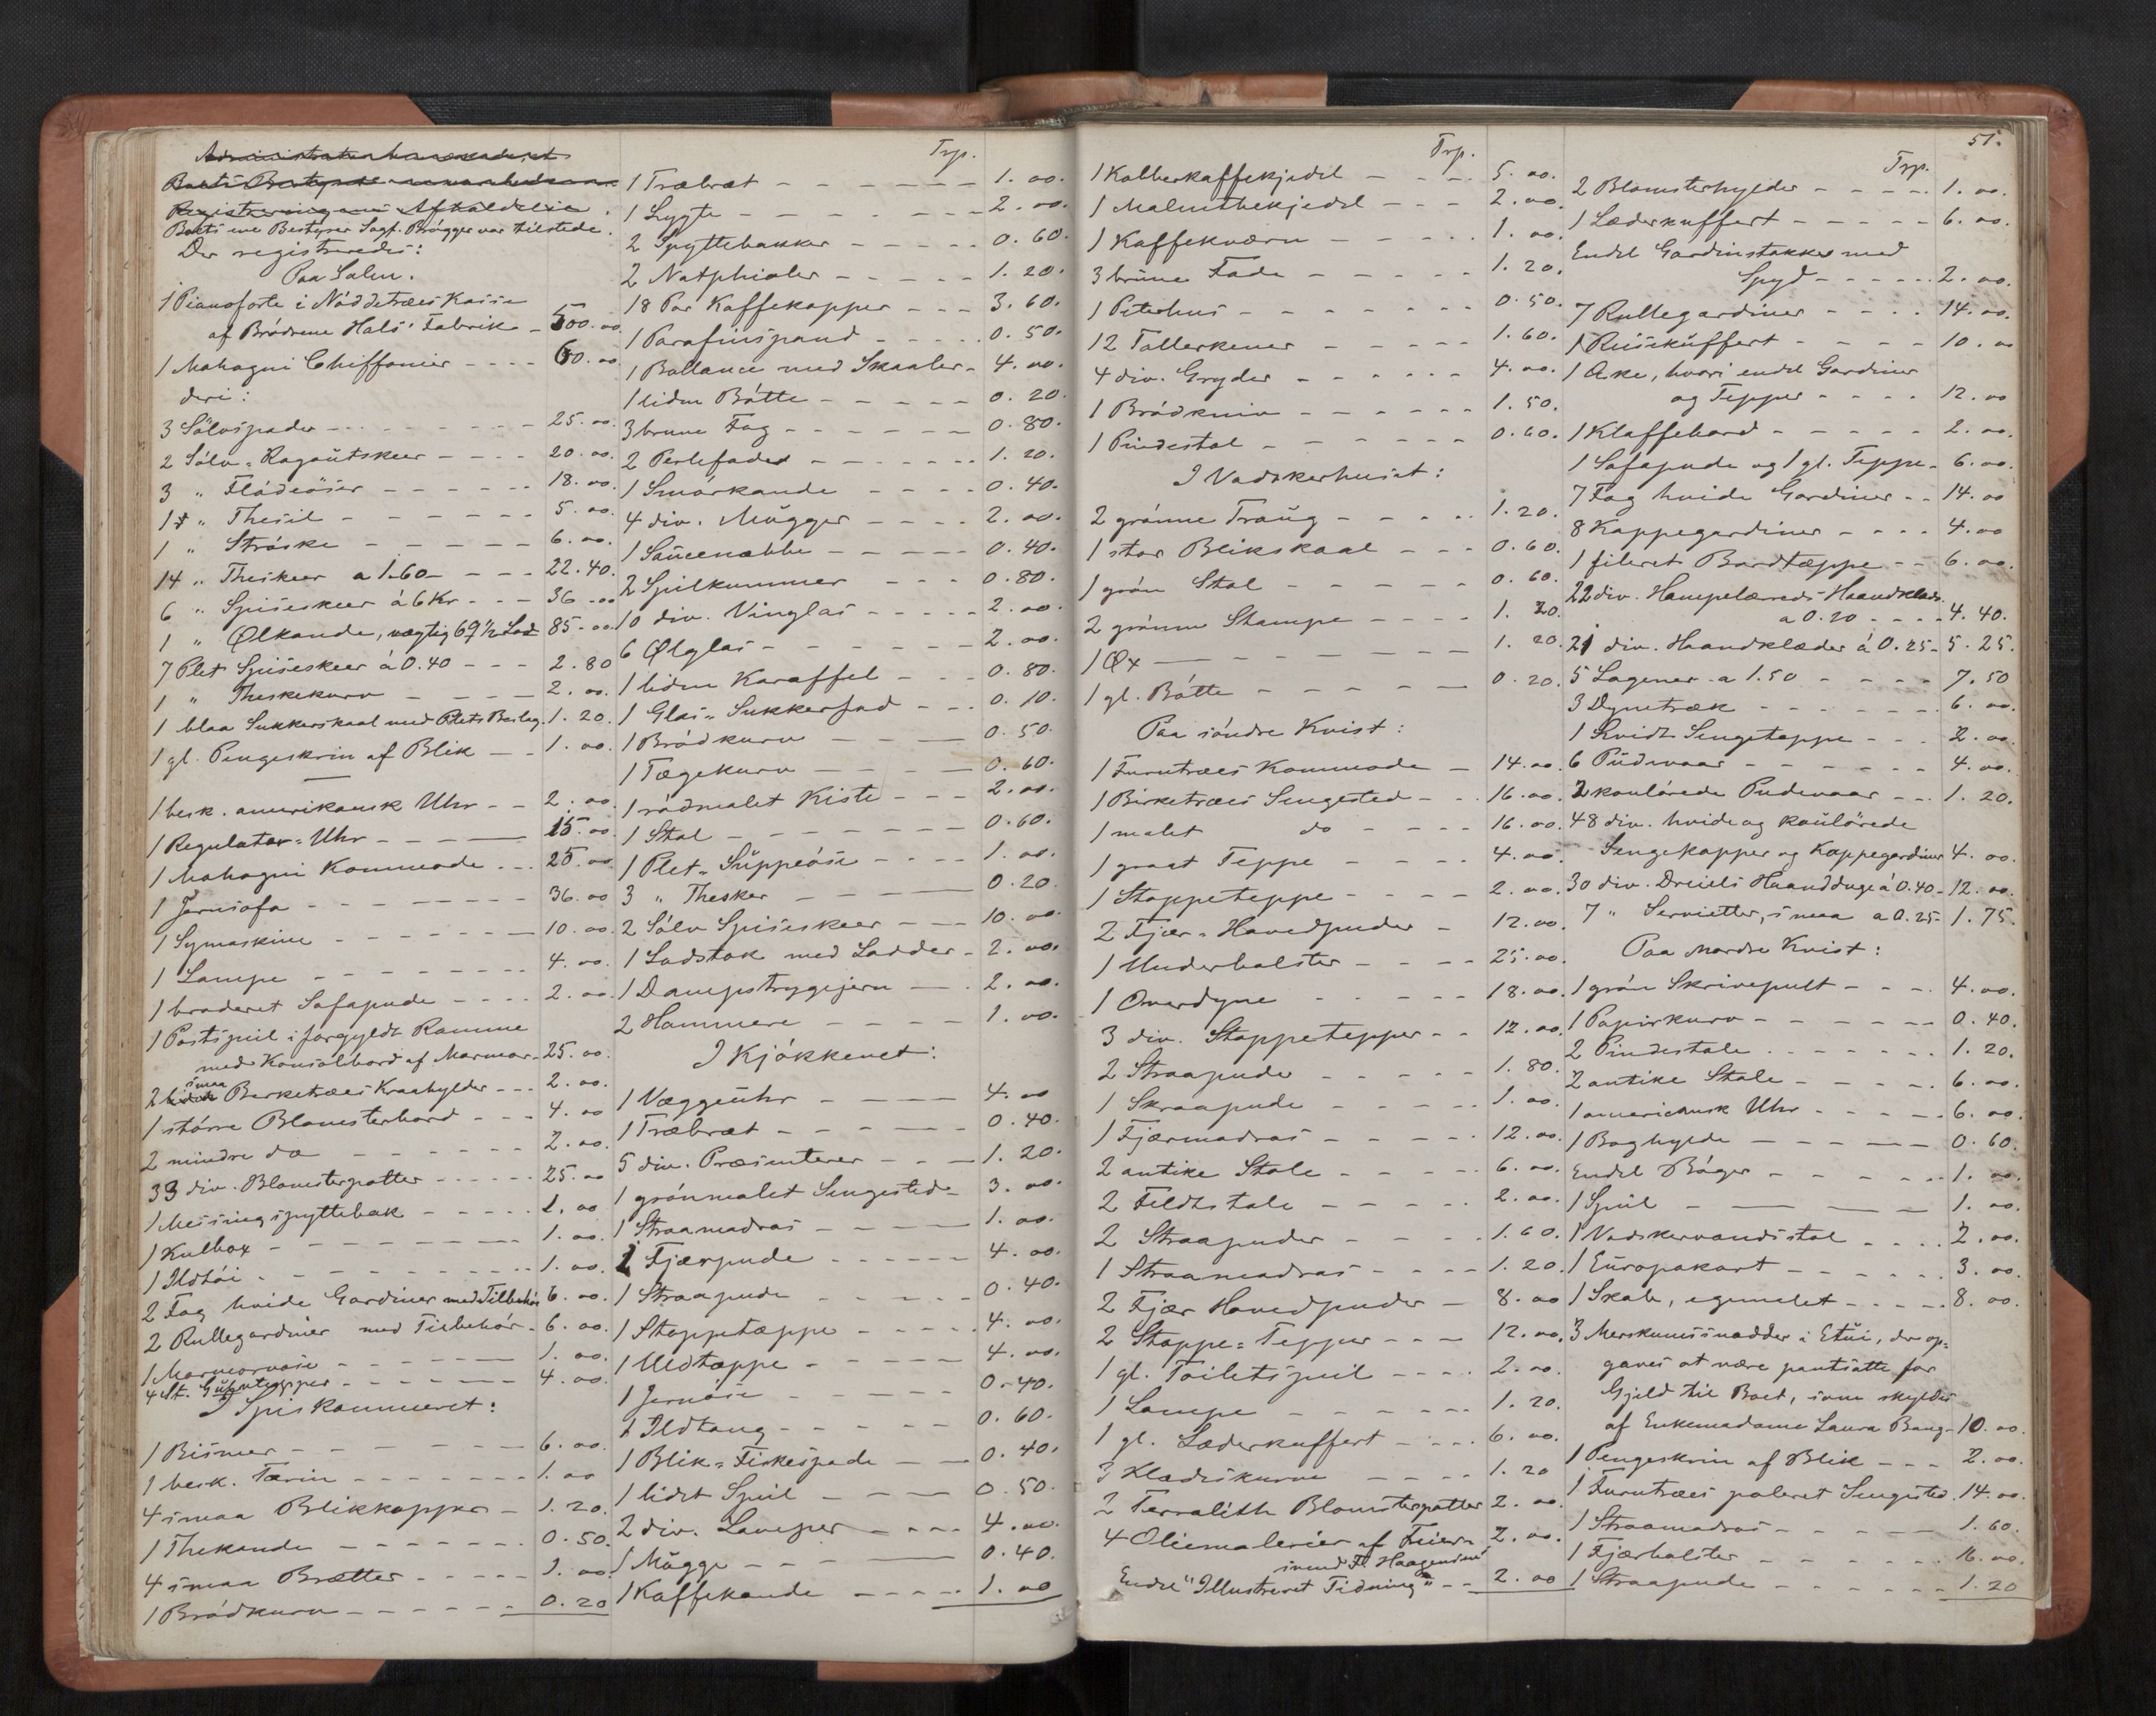 Boets ene Bestyrer Sagf. Brøgger var tilstede.
Der registreredes:
Paa Salen.
1 Pianoforte i Nøddetræes Kasse
af Brødrene Hals' Fabrik - 500.00
1 Mahagni Chiffonier - - - - 60.00
deri:
3 Sølvspader - - - - 25.00
2 Sølv-Ragoutskeer - - - - 20.00
3 " Flødeøser - - - - 18.00
1 " Thesil - - - - 5.00
1 " Strøske - - - - 6.00
14 " Theskeer a 1.60 - - - 22.40
6 " Spiseskeer á 6 Kr - - - 36.00
1 " Ølkande, vægtig 69 1/2 Lod 85.00
7 Plet Spiseskeer á 0.40 - - - 2.80
1 " Theskekurv - - - - 2.00
1 blaa Sukkerskaal med Plets Beslag. 1.20.
1 gl. Pengeskrin af Blik - - 1.00
1 besk. amerikansk Uhr - - 2.00
1 Regulator-Uhr - - - 15.00
1 Mahagni Kommode - - - 25.00
1 Jernsofa - - - - 36.00
1 Symaskine - - - - 10.00
1 Lampe - - - - 4.00
1 broderet Sofapude - - - - 2.00
1 Postspeil i forgyldt Ramme
med Konsolbord af Marmor - 25.00
2 smaa Berketræes Kraahylder - - - 2.00
1 større Blomsterbord - - - 4.00
2 mindre do - - - - 2.00
33 div. Blomsterpotter - - - - 25.00
1 Messingspyttebak - - - - 1.00
1 Kulbox - - - - 1.00
1 Ildtøi - - - - 1.00
2 Fag hvide Gardiner med Tilbehør 6.00
2 Rullegardiner med Tilbehør - 6.00
1 Marmorvase - - - - 1.00
4 St. Gulvtepper - - - - 4.00
I Spiskammeret:
1 Bismer - - - - 6.00
1 besk. Terrin - - - - 1.00
4 smaa Blikkopper - 1.20.
1 Thekande - - - - 0.50.
4 smaa Brætter - - - - 1.00
1 Brødkurv - - - - 0.20
Trp.
1 Træbræt - - - - 1.00.
1 Lygte - - - - 2.00.
2 Spyttebakker - - - - 0.60.
2 Natphioler - - - - 1.20.
18 Par Kaffekopper - - - 3.60.
1 Parafinspand - - - - 0.50.
1 Ballance med Skaaler - 4.00.
1 liden Bøtte - - - - 0.20.
3 brune Fag - - - - 0.80.
2 Perlefader - - - - 1.20.
1 Smørkande - - - - 0.40.
4 div. Mugger - - - - 2.00.
1 Saucenæbbe - - - - 0.40.
2 Spilkummer - - - - 0.80.
10 div. Vinglas - - - - 2.00.
6 Ølglas - - - - 2.00.
1 liden Karaffel - - - 0.80.
1 Glas-Sukkerfad - - - 0.10.
1 Brødkurv - - - - 0.50.
1 Tægekurv - - - - 0.60.
1 rødmalet Kiste - - - 2.00.
1 Stol - - - - 0.60.
1 Plet-Suppeøse - - - - 1.00.
3 " Thesker - - - - 0.20.
2 Sølv Spiseskeer - - - - 10.00.
1 Ladstok med Ladder - 2.00.
1 Dampstrygejern - - 2.00.
2 Hammere - - - - 1.00.
I Kjøkkenet:
1 Væggeuhr - - - - 4.00
1 Træbræt - - - - 0.40.
5 div. Præsenterer - - - 1.20.
1 grønmalet Sengested - 3.00.
1 Straamadras - - - - 1.00.
1 Fjærpude - - - - 4.00.
1 Straapude - - - - 0.40.
1 Stoppetæppe - - - - 4.00.
1 Uldtæppe - - - - 4.00.
1 Jernøse - - - - 0.40.
1 Ildtang - - - - 0.60.
1 Blik-Fiskespade - - 0.40.
1 lidet Speil - - - - 0.50.
2 div. Lamper - - - - 4.00.
1 Mugge - - - - 0.40.
1 Kaffekande - - - - 1.00
51.
Trp.
1 Kobberkaffekjedel - - - 5.00.
1 Malmthekjedel - - - 2.00.
1 Kaffekværn - - - - 1.00.
3 brune Fade - - - - 1.20.
1 Peterhus - - - - 0.50.
12 Tallerkener - - - - 1.60.
4 div. Gryder - - - - 4.00.
1 Brødkniv - - - - 1.50.
1 Pindestol - - - - 0.60.
I Vadskerhuset:
2 grønne Traug - - - - 1.20.
1 stor Blikskaal - - - 0.60.
1 grøn Stol - - - - 0.60.
2 grønne Stampe - - - - 1.20.
1 Øx - - - - 1.20.
1 gl. Bøtte - - - - 0.20.
Paa søndre Kvist:
1 Furutræes Kommode - 14.00.
1 Birketræes Sengested - - 16.00.
1 malet do - - - - 16.00.
1 graat Teppe - - - - 4.00.
1 Stoppeteppe - - - - 2.00.
2 Fjær-Hovedpuder - 12.00.
1 Underbolster - - - - 25.00.
1 Overdyne - - - - 18.00.
3 div. Stoppetepper - - 12.00.
2 Straapuder - - - - 1.80.
1 Skraapude - - - - 1.00.
1 Fjærmadras - - - - 12.00.
2 antike Stole - - - - 6.00.
2 Feldtstole - - - - 2.00.
2 Straapuder - - - - 1.60.
1 Straamadras - - - - 1.20.
2 Fjær Hovedpuder - 8.00
2 Stoppe-Tepper - - - 12.00.
1 gl. Toiletspeil - - - - 2.00.
1 Lampe - - - - 1.20.
1 gl. Læderkuffert - - - - 6.00.
3 Klædeskurve - - - - 1.20
2 Terralith Blomsterpotter 2.00.
4 Oliemalerier af 2.00.
Endel "Illustreret Tidning" - - 2.00
Trp.
2 Blomsterhylder - - - - 1.00.
1 Læderkuffert - - - - 6.00.
Endel Gardinstokke med
Spyd - - - - 2.00.
7 Rullegardiner - - - - 14.00.
1 Reisekuffert - - - - 10.00
1 Æske, hvori endel Gardiner
og Tepper - - - - 12.00
1 Klaffebord - - - - 2.00.
1 Sofapude og 1 gl. Teppe - 6.00.
7 Fag hvide Gardiner - - 14.00
8 Kappegardiner - - - - 4.00
1 fileret Bordtæppe - - 6.00.
22 div. Hampelærreds-Haandklæder
a 0.20 - - - - 4.40.
21 div. Haandklæder á 0.25 - 5.25.
5 Lagener a 1.50 - - - - 7.50
3 Dynetræk - - - - 6.00.
1 hvidt Sengeteppe - - - 2.00.
6 Pudevaar - - - - 4.00.
2 koulørede Pudevaar - - - 1.20.
48 div. hvide og koulørede
Sengekapper og Kappegardiner 4.00.
30 div. Dreiels Haandduge á 0.40 - 12.00.
7 " Servietter, smaa a 0.25 - 1.75.
Paa Nordre Kvist:
1 grøn Skrivepult - - - 4.00.
1 Papirkurv - - - - 0.40.
2 Pindestole - - - - 1.20.
2 antike Stole - - - - 6.00.
1 americansk Uhr - - - - 6.00.
1 Boghylde - - - - 0.60.
Endel Bøger - - - - 1.00.
1 Speil - - - - 1.00.
1 Vadskevandsstol - - - - 2.00.
1 Europakart - - - - 3.00.
1 Skab, egemalet - - - - 8.00.
3 Merskumssnadder i Etui, der op-
gaves at være pantsatte for
Gjeld til Boet, som skyldes
af Enkemadame Laura Bang - 10.00.
1 Pengeskrin af Blik - - - 2.00.
1 Furutræes poleret Sengested. 14.00.
1 Straamadras - - - - 1.60.
1 Fjærbolster - - - - 16.00.
1 Straapude - - - - 1.20